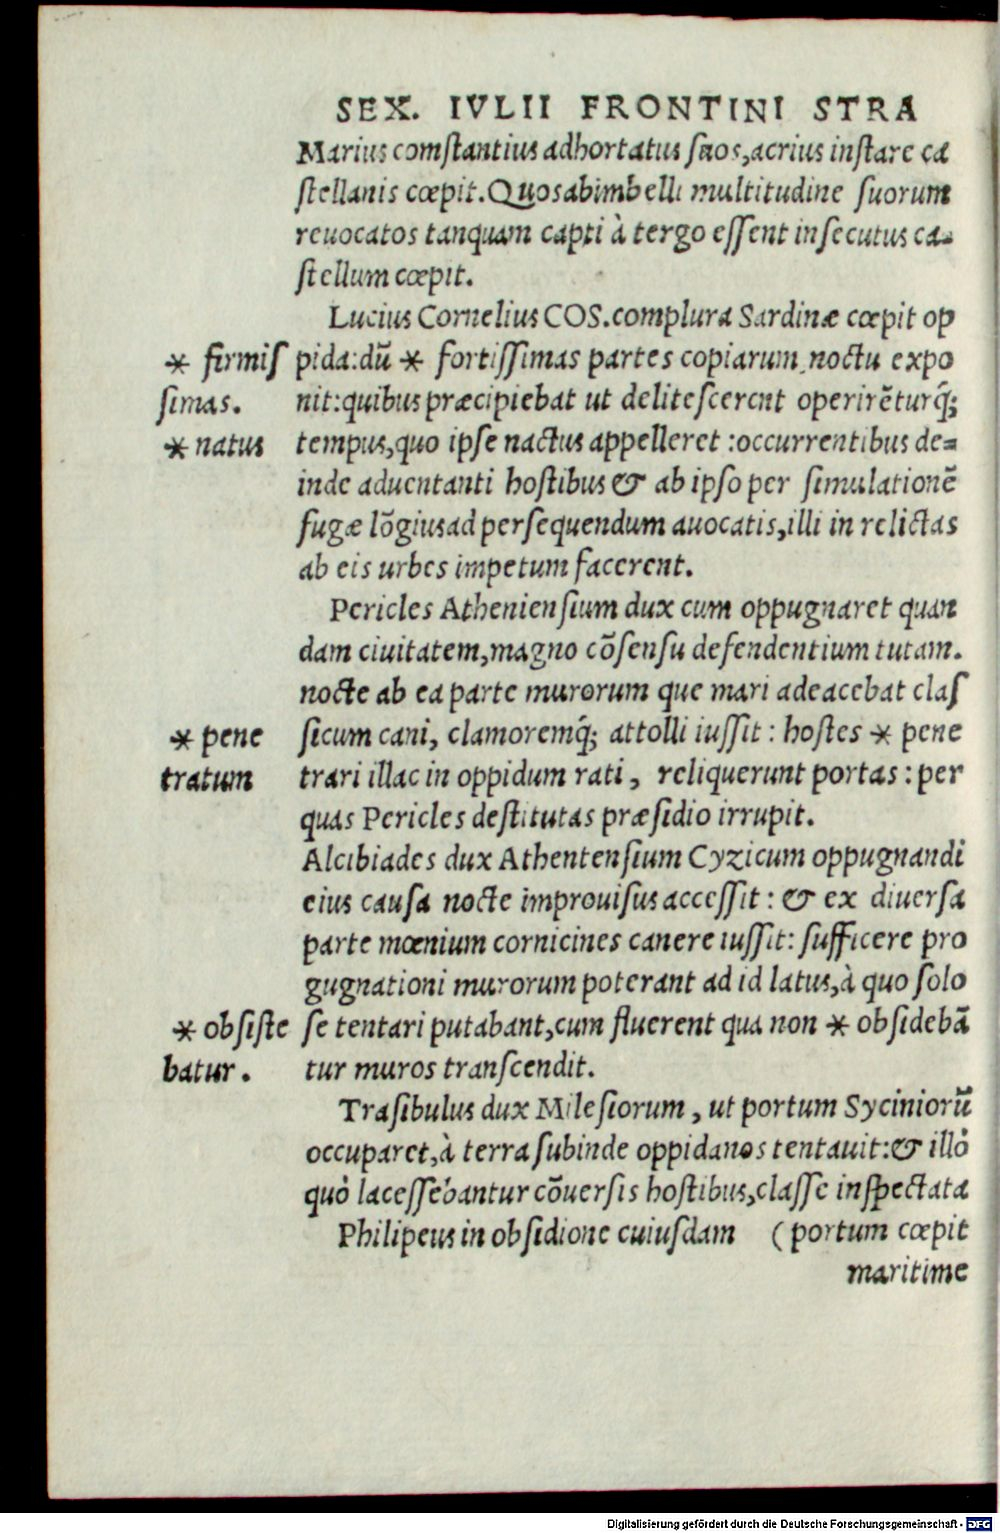 SEX. IVLII FRONTINI STRA
Marius comſtantius adhortatus ſuos,acrius inſtare ca
ſtellanis cœpit.Quos ab imbelli multitudine ſuorum
reuocatos tanquam capti à tergo eſſent inſecutus ca-
ſtellum cœpit.
Lucius Cornelius COS.complura Sardinæ cœpit op
* firmiſ pida:dū * fortiſſimas partes copiarum noctu expo
ſimas. nit:quibus præcipiebat ut deliteſcerent operirēturq́;
* natus tempus,quo ipſe nactus appelleret :occurrentibus de=
inde aduentanti hoſtibus & ab ipſo per ſimulationē
fugæ lōgius ad perſequendum auocatis,illi in relictas
ab eis urbes impetum facerent.
Pericles Athenienſium dux cum oppugnaret quan
dam ciuitatem,magno cōſenſu defendentium tutam.
nocte ab ea parte murorum que mari adeacebat claſ
* pene ſicum cani, clamoremq́; attolli iuſſit : hoſtes * pene
tratum trari illac in oppidum rati, reliquerunt portas : per
quas Pericles deſtitutas præſidio irrupit.
Alcibiades dux Athentenſium Cyzicum oppugnandi
eius cauſa nocte improuiſus acceſſit : & ex diuerſa
parte mœnium cornicines canere iuſſit: ſufficere pro
gugnationi murorum poterant ad id latus,à quo ſolo
* obſiſte ſe tentari putabant,cum fluerent qua non * obſidebā
batur. tur muros tranſcendit.
Traſibulus dux Mileſiorum, ut portum Syciniorū
occuparet,à terra ſubinde oppidanos tentauit:& illò
quò laceſſebantur cōuerſis hoſtibus,claſſe inſpectata
Philipeus in obſidione cuiuſdam (portum cœpit
maritime
Digitalisierung gefördert durch die Deutsche Forschungsgemeinschaft - DFG